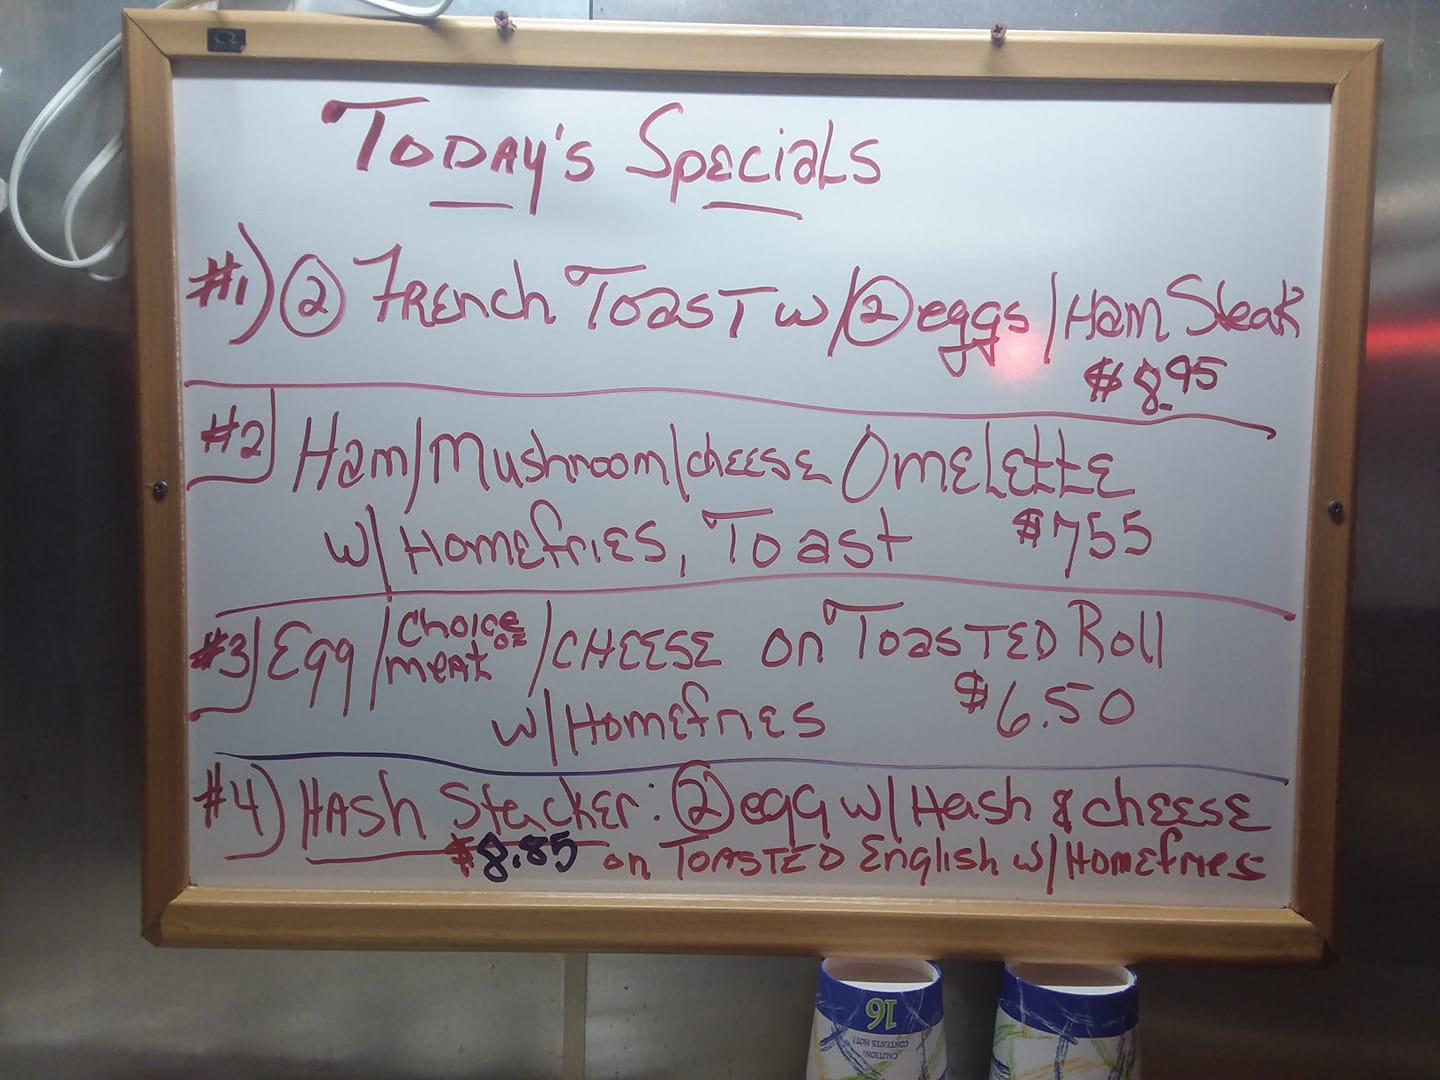 Today's Specials
#1) 2 French Toast w/ 2 eggs / Ham Steak
$8.95
#2 Ham/Mushroom/cheese Omelette
w/ Homefries, Toast $755
#3 Egg / choice of meat / CHEESE on Toasted Roll
w/ Homefries $6.50
#4) Hash Stacker: 2 egg w/ Hash & cheese
$8.85 on Toasted English w/ Homefries
16
CAUTION:
CONTENTS HOT!